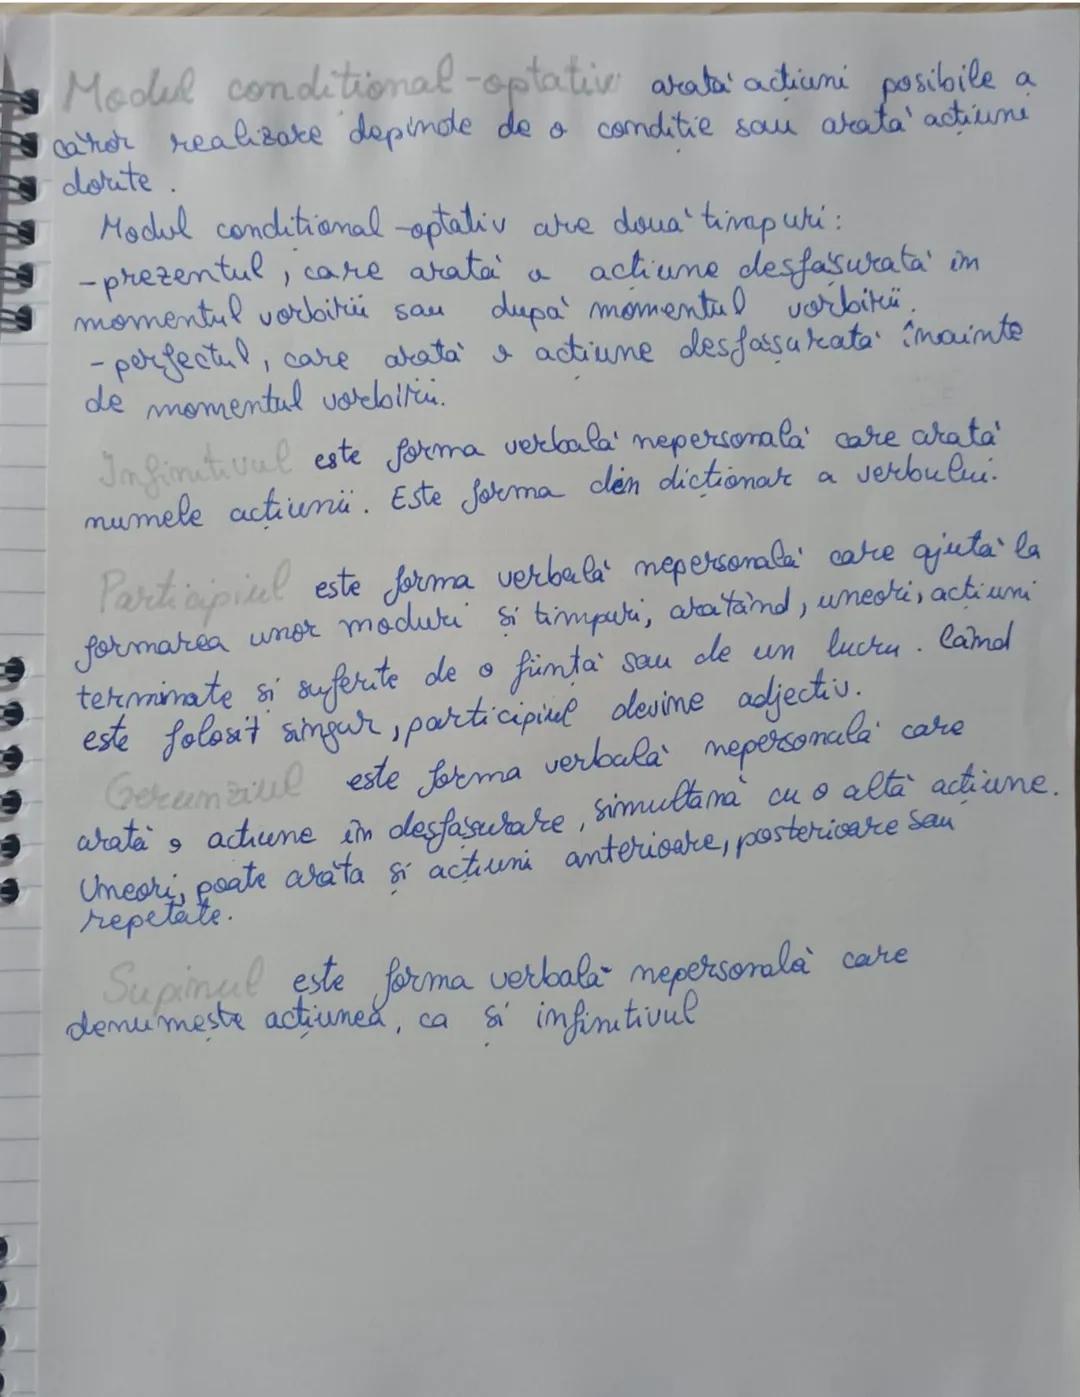 Modul condițional-optativ arată acțiuni posibile a
căror realizare depinde de o condiție sau arată acțiuni
dorite.
Modul condițional-optativ are două timpuri:
-prezentul, care arată o acțiune desfășurată în
momentul vorbirii sau după momentul vorbirii.
-perfectul, care arată o acțiune desfășurată înainte
de momentul vorbirii.
Infinitivul este forma verbală nepersonală care arată
numele acțiunii. Este forma din dicționar a verbului.
Participiul este forma verbală nepersonală care ajută la
formarea unor moduri și timpuri, arătând, uneori, acțiuni
terminate și suferite de o ființă sau de un lucru. Când
este folosit singur, participiul devine adjectiv.
Gerunziul este forma verbală nepersonală care
arată o acțiune în desfășurare, simultană cu o altă acțiune.
Uneori, poate arăta și acțiuni anterioare, posterioare sau
repetate.
Supinul este forma verbală nepersonală care
denumește acțiunea, ca și infinitivul